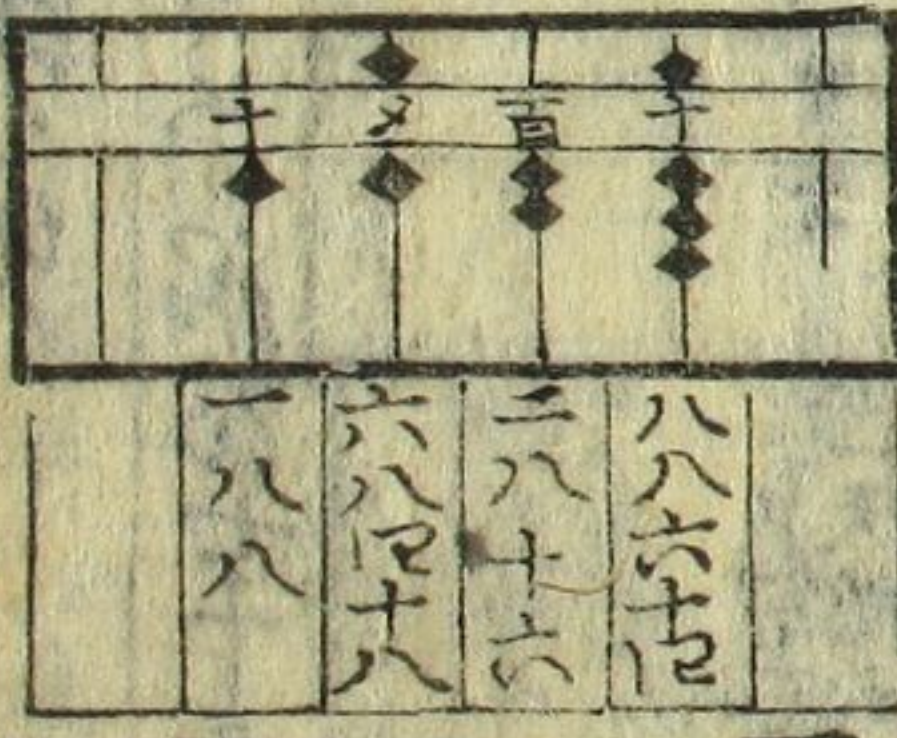 十
百
メ
十
八八六十四
二八十六
六八四十八
一八八